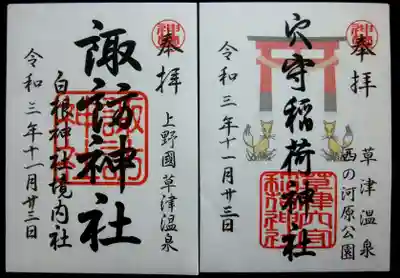 奉拝
上野國草津温泉
諏訪神社
白根神社境内社
令和三年十一月廿三日
奉拝
草津温泉
西の河原公園
穴守稲荷神社
令和三年十一月廿三日